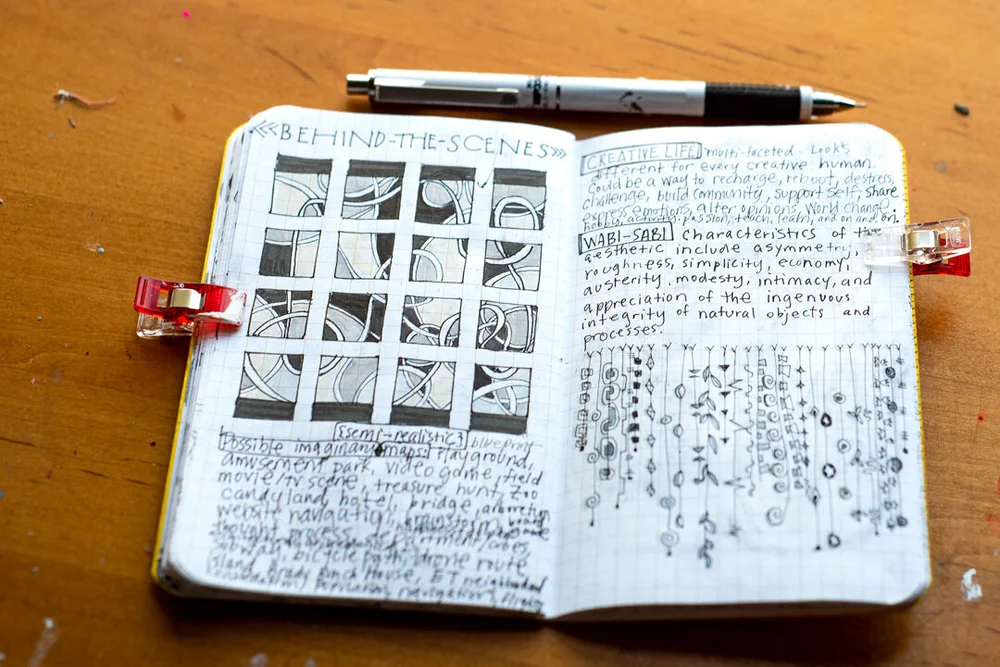 <<BEHIND-THE-SCENES>>
{semi-realistic} blueprint
Possible imaginary maps: Playground,
amusement park, video game, field
movie/tv scene, treasure hunt, zoo
candyland, hotel, bridge, arboretum
website navigation, brainstorm, board
thought process,
subway, bicycle path, drone route
island, Brady Bunch House, ET neighborhood
navigation,
CREATIVE LIFE multi-faceted. Looks
different for every creative human.
Could be a way to recharge, reboot, destress,
challenge, build community, support self, share
express emotions, alter opinions, world change,
hobbies, activity, passion, teach, learn, and on and on.
WABI-SABI Characteristics of the
aesthetic include asymmetry,
roughness, simplicity, economy,
austerity, modesty, intimacy, and
appreciation of the ingenuous
integrity of natural objects and
processes.